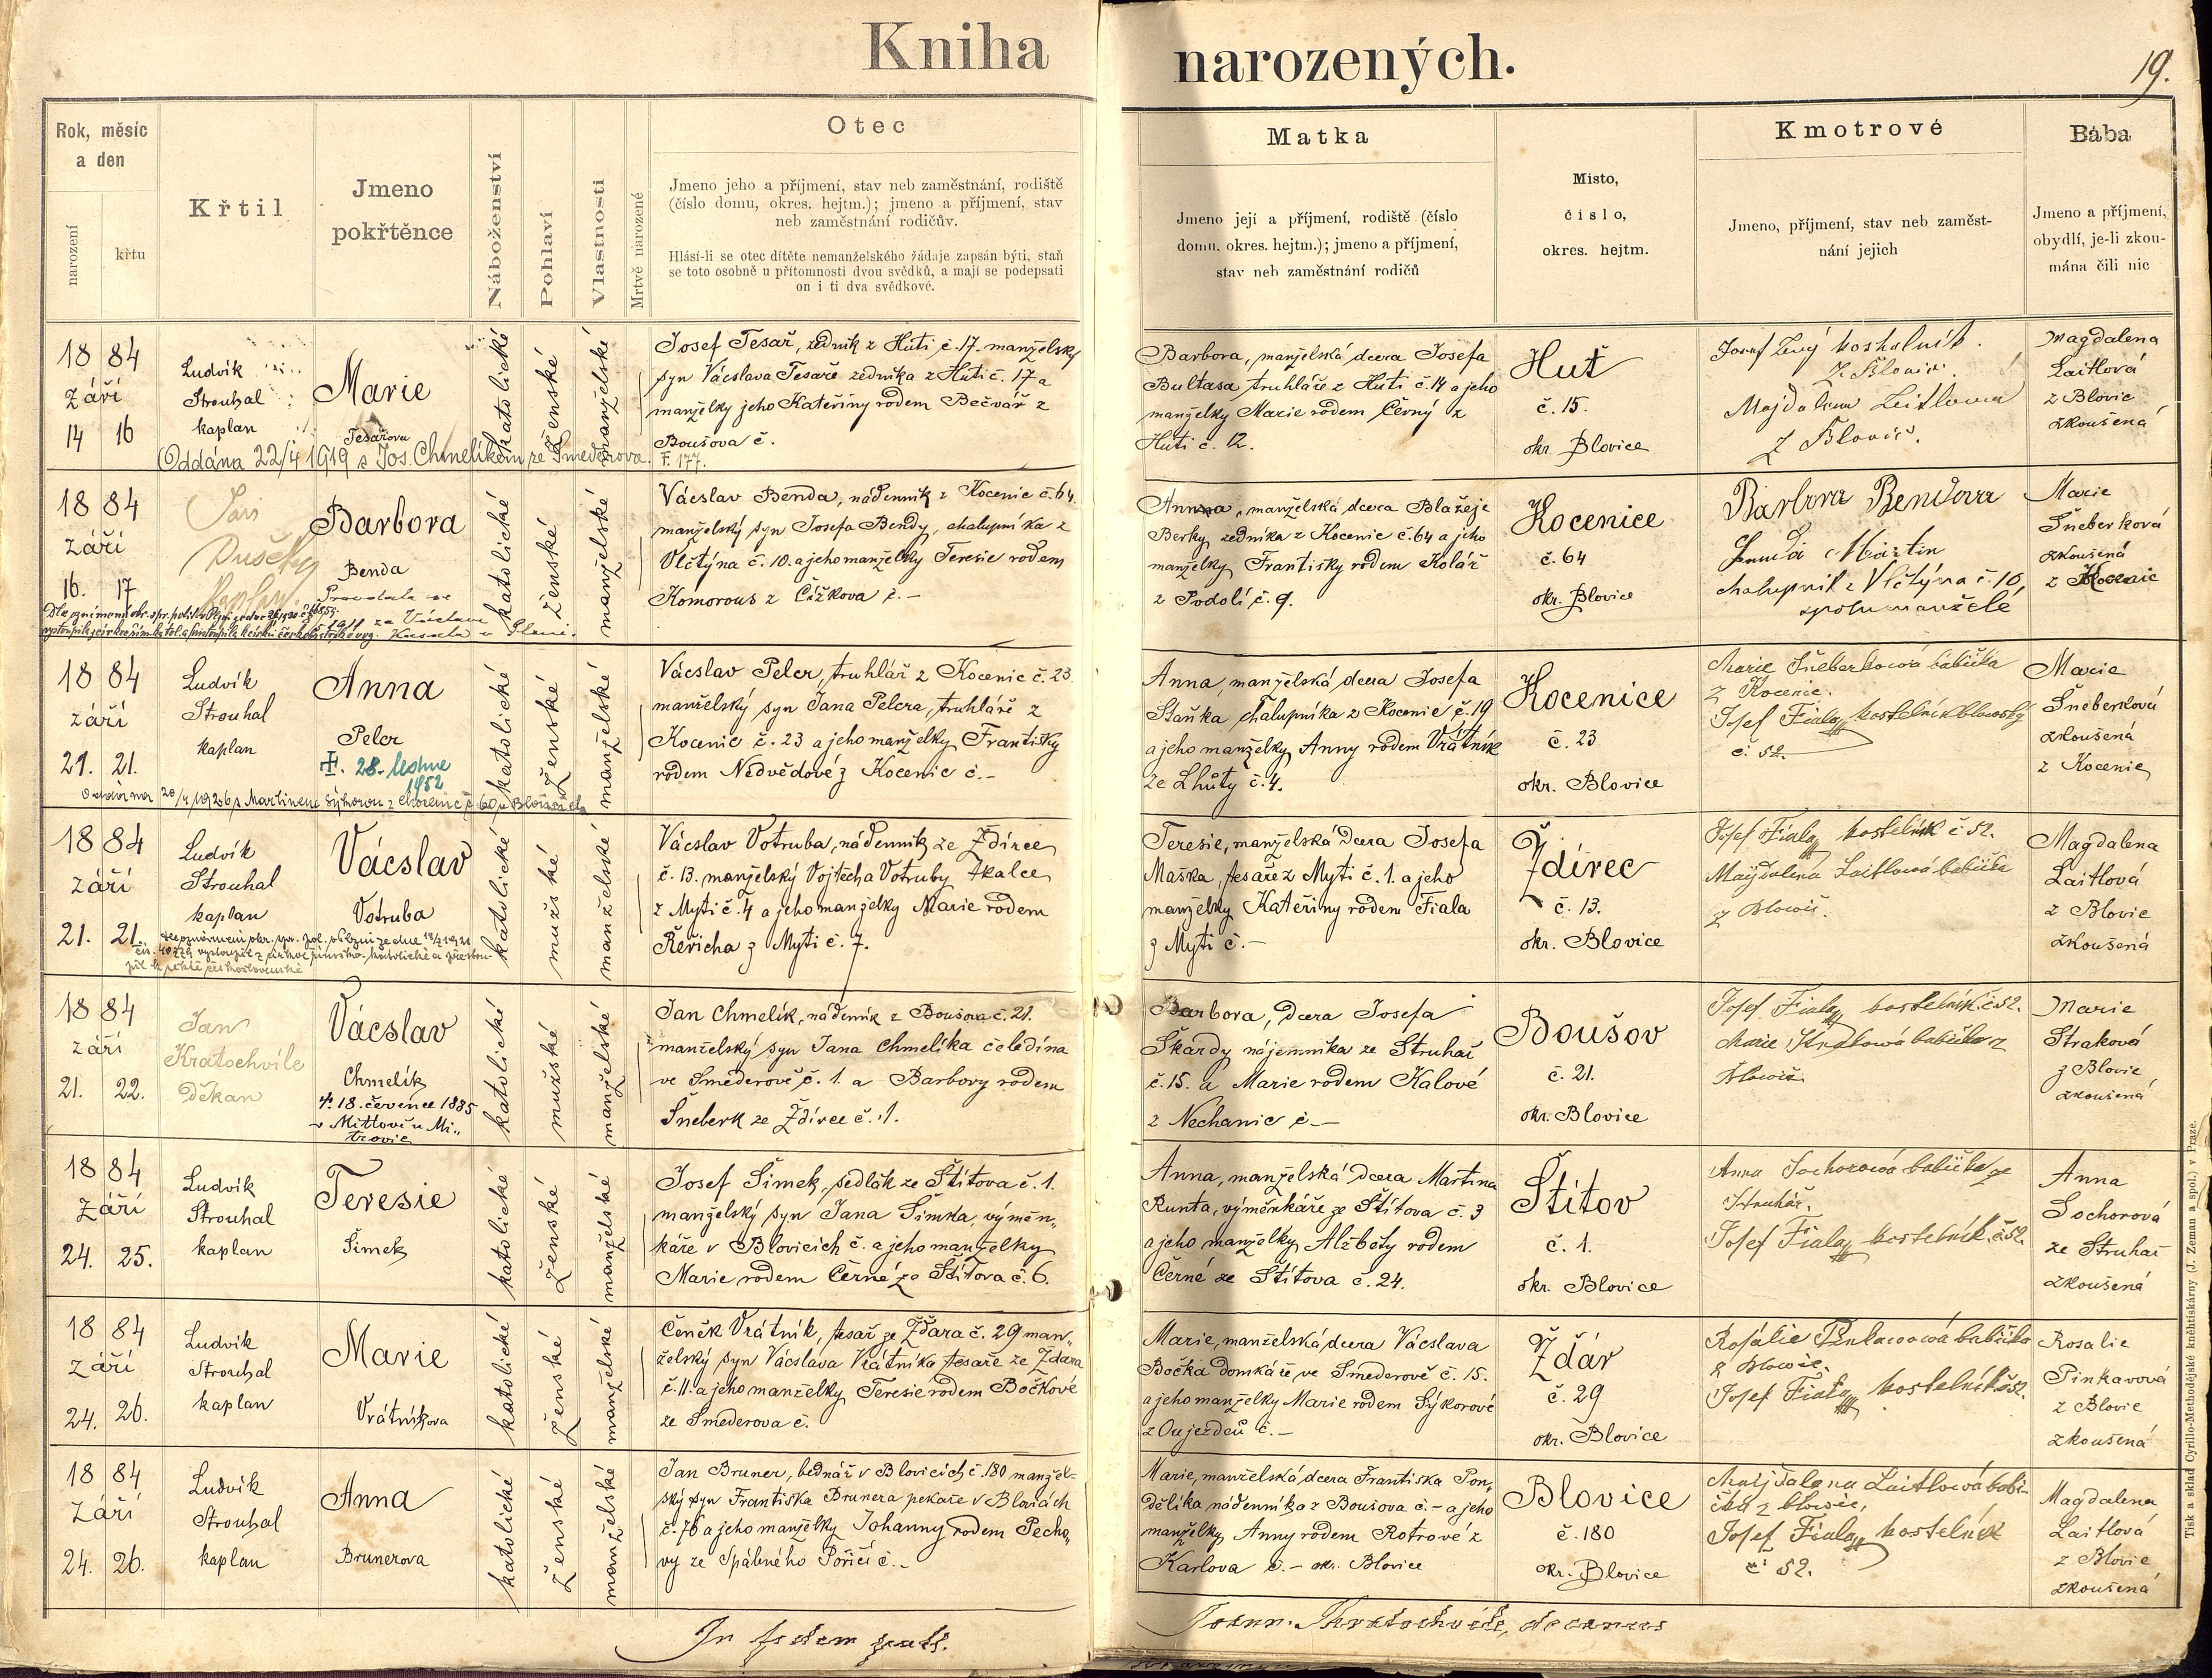 Kniha narozených.
19.
Rok, měsíc a den
narození
křtu
Křtil
Jmeno pokřtěnce
Náboženství
Pohlaví
Vlastnosti
Mrtvě narozené
Otec
Jmeno jeho a příjmení, stav neb zaměstnání, rodiště
(číslo domu, okres. hejtm.); jmeno a příjmení, stav
neb zaměstnání rodičův.
Hlásí-li se otec dítěte nemanželského žádaje zapsán býti, staň
se toto osobně u přítomnosti dvou svědků, a mají se podepsati
on i ti dva svědkové.
Matka
Jmeno její a příjmení, rodiště (číslo
domu, okres. hejtm.); jmeno a příjmení,
stav neb zaměstnání rodičů
Místo,
číslo,
okres. hejtm.
Kmotrové
Jmeno, příjmení, stav neb zaměst-
nání jejich
Bába
Jmeno a příjmení,
obydlí, je-li zkou-
mána čili nic
18 84
září
14 16
Ludvík
Strouhal
kaplan
Marie
Tesařova
katolické
ženské
manželské
Josef Tesař, zedník z Huti č. 17. manželský
syn Václava Tesaře zedníka z Huti č. 17 a
manželky jeho Kateřiny rodem Bečvář z
Boušova č.
Oddána 22/4 1919 s Jos. Chmelíkem ze Smederova. F. 177.
Barbora, manželská dcera Josefa
Bultasa truhláře z Huti č. 14 a jeho
manželky Marie rodem Černý z
Huti č. 12.
Huť
č. 15.
okr. Blovice
Josef
z Blovic.
Majdalena Leitlowa
z Blovic.
Magdalena
Laitlová
z Blovic
zkoušená
18 84
září
16. 17
Jan
Dušek
kaplan
Barbora
Benda
katolické
ženské
manželské
Václav Benda, nádenník z Kocenic č. 64.
manželský syn Josefa Bendy, chalupníka z
Vlčtýna č. 10. a jeho manželky Teresie rodem
Komorous z Čížkova č. –
Anna, manželská dcera Blažeje
Berky zedníka z Kocenic č. 64 a jeho
manželky Františky rodem Kolář
z Podolí č. 9.
Kocenice
č. 64
okr. Blovice
Barbora Bendova
Martin
chalupník z Vlčtýna č 10,
spolu manželé
Marie
Šneberková
zkoušená
z Kocenic
18 84
září
21. 21.
Ludvík
Strouhal
kaplan
Anna
Pelcr
28. ledna
1952
katolické
ženské
manželské
Vácslav Pelcr, truhlář z Kocenic č. 23
manželský syn Jana Pelcra, truhláře z
Kocenic č. 23 a jeho manželky Františky
rodem Nedvědové z Kocenic č. –
Anna, manželská dcera Josefa
Staňka chalupníka z Kocenic č. 19
a jeho manželky Anny rodem Vrátník
ze Lhůty č. 4.
Kocenice
č. 23
okr. Blovice
Marie Šneberkowá babička
z Kocenic.
Josef Fiala kostelník blowský
č. 52.
Marie
Šneberková
zkoušená
z Kocenic
18 84
září
21. 21.
Ludvík
Strouhal
kaplan
Vácslav
Votruba
katolické
mužské
manželské
Vácslav Votruba, nádenník ze Ždírce
č. 13. manželský Vojtecha Votruby tkalce
z Mytí č. 4 a jeho manželky Marie rodem
Řeřicha z Mytí č. 7.
Teresie, manželská dcera Josefa
Maška, tesaře z Mytí č. 1. a jeho
manželky Kateřiny rodem Fiala
z Mytí č. –
Ždírec
č. 13.
okr. Blovice
Josef Fiala kostelník č 52.
Majdalena Laitlowá babička
z Blowic.
Magdalena
Laitlová
z Blovic
zkoušená
18 84
září
21. 22.
Jan
Kratochvíle
Děkan
Vácslav
Chmelík
†. 18. července 1885
v Mítově u Mi-
trovic
katolické
mužské
manželské
Jan Chmelík, nádenník z Boušova č. 21.
manželský syn Jana Chmelíka čeledína
ve Smederově č. 1. a Barbory rodem
Šneberk ze Ždírce č. 1.
Barbora, dcera Josefa
Škardy nájemníka ze Struhař
č. 15. a Marie rodem Kalové
z Nechanic č –
Boušov
č. 21.
okr. Blovice
Josef Fiala kostelník č 52.
Marie Strakowá babička z
Blowic
Marie
Straková
z Blovic
zkoušená
18 84
Září
24. 25.
Ludvík
Strouhal
kaplan
Teresie
Šimek
katolické
ženské
manželské
Josef Šimek, sedlák ze Štítova č. 1.
manželský syn Jana Šimka, výměn-
káře v Blovicích č. a jeho manželky
Marie rodem Černé ze Štítova č. 6.
Anna, manželská dcera Martina
Runta, výměnkáře ze Štítova č. 3
a jeho manželky Alžběty rodem
Černé ze Štítova č. 24.
Štítov
č. 1.
okr. Blovice
Anna Sochorowá babička ze
Struhař.
Josef Fiala kostelník č 52.
Anna
Sochorová
ze Struhař
zkoušená
18 84
Září
24. 26.
Ludvík
Strouhal
kaplan
Marie
Vrátníkova
katolické
ženské
manželské
Čeněk Vrátník, tesař ze Žďara č. 29 man-
želský syn Vácslava Vrátníka tesaře ze Ždara
č. 11. a jeho manželky Teresie rodem Bočkové
ze Smederova č.
Marie, manželská dcera Vácslava
Bočka domkáře ve Smederově č. 15.
a jeho manželky Marie rodem Sýkorové
z Oujezdců č. –
Žďár
č. 29
okr. Blovice
Rosalie Pinkawowá babička
z Blowic.
Josef Fiala kostelník č 52.
Rosalie
Pinkavová
z Blovic
zkoušená
18 84
Září
24. 26.
Ludvík
Strouhal
kaplan
Anna
Brunerova
katolické
ženské
manželské
Jan Bruner, bednář v Blovicích č. 180 manžel-
ský syn Františka Brunera pekaře v Blovicích
č. 76 a jeho manželky Johanny rodem Pecho-
vy ze Spáleného Poříčí č. –
Marie, manželská dcera Františka Pon-
dělíka nádenníka z Boušova č. – a jeho
manželky Anny rodem Rotrové z
Karlova č. – okr. Blovice
Blovice
č. 180
okr. Blovice
Majdalena Laitlowá babi-
čka z Blowic,
Josef Fiala kostelník
č 52.
Magdalena
Laitlová
z Blovic
zkoušená
In fidem
Joann. Kratochvíle, decanus
Tisk a sklad Cyrillo-Methodějské kněhtiskárny (J. Zeman a spol.) v Praze.